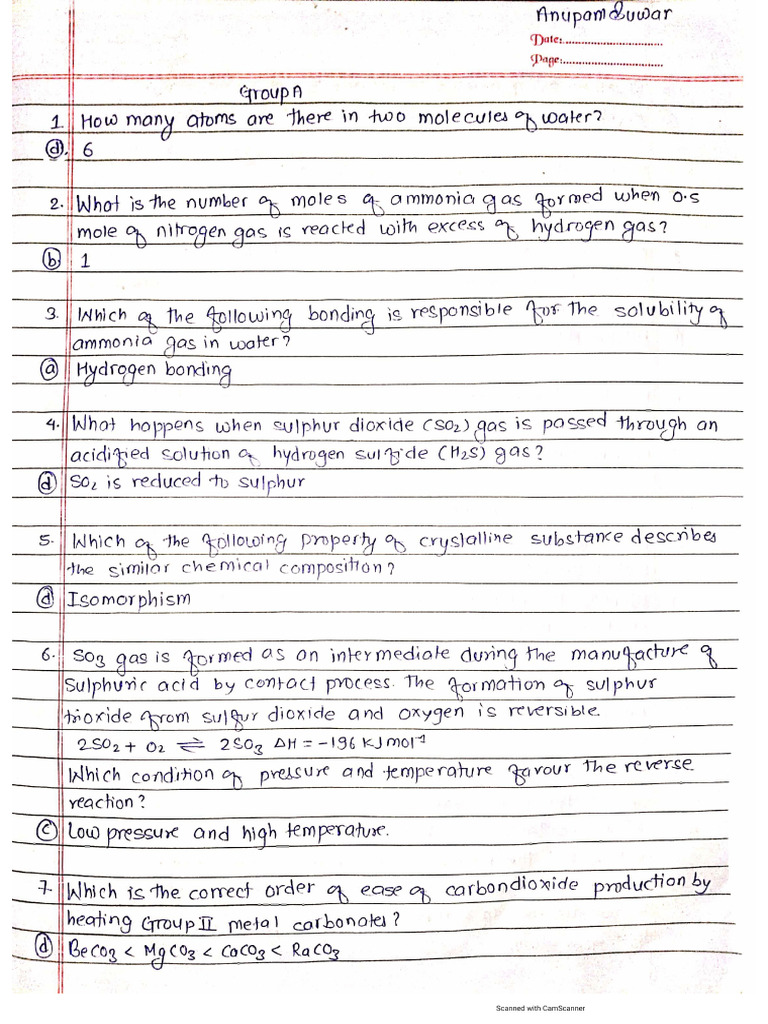 Anupam Suwar
Date:
Page:
Group A
1. How many atoms are there in two molecules of water?
(d). 6
2. What is the number of moles of ammonia gas formed when 0.5
mole of nitrogen gas is reacted with excess of hydrogen gas?
(b) 1
3. Which of the following bonding is responsible for the solubility of
ammonia gas in water?
(a) Hydrogen bonding
4. What happens when sulphur dioxide (SO2) gas is passed through an
acidified solution of hydrogen sulfide (H2S) gas?
(d) SO2 is reduced to sulphur
5. Which of the following property of crystalline substance describes
the similar chemical composition?
(d) Isomorphism
6. SO3 gas is formed as an intermediate during the manufacture of
Sulphuric acid by contact process. The formation of sulphur
trioxide from sulfur dioxide and oxygen is reversible.
2SO2 + O2 ⇌ 2SO3 ΔH = -196 KJ mol-1
Which condition of pressure and temperature favour the reverse
reaction?
(c) Low pressure and high temperature.
7. Which is the correct order of ease of carbondioxide production by
heating Group II metal carbonates?
(d) BeCO3 < MgCO3 < CaCO3 < RaCO3
Scanned with CamScanner